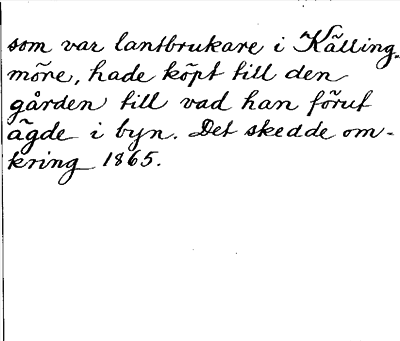 som var lantbrukare i Källing-
möre, hade köpt till den
gården till vad han förut
ägde i byn. Det skedde om-
kring 1865.